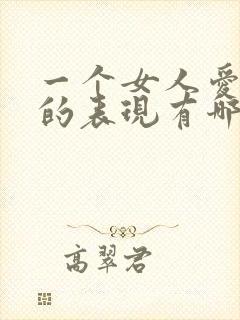 一个女人爱
的表现有哪
高翠君